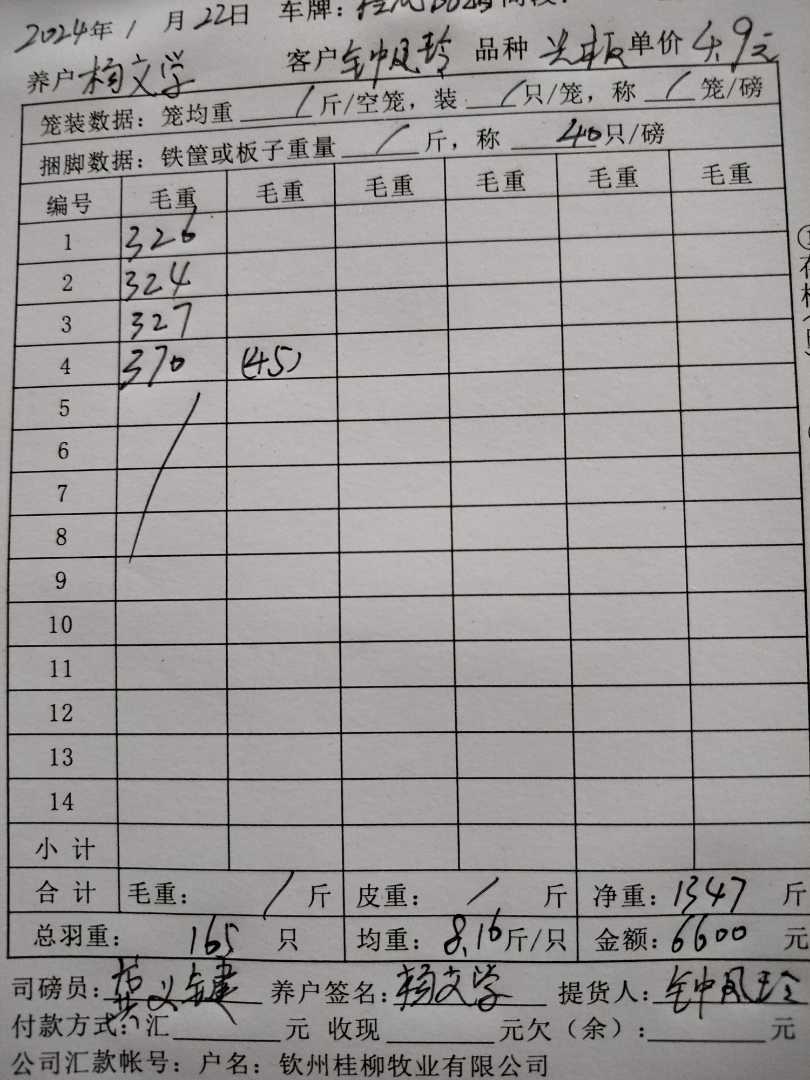 2024年 1 月 22日 车牌：
养户 杨文学 客户 钟凤玲 品种 单价 4.9元
笼装数据：笼均重 / 斤/空笼，装 / 只/笼，称 / 笼/磅
捆脚数据：铁筐或板子重量 / 斤，称 40只/磅
编号 毛重 毛重 毛重 毛重 毛重 毛重
1 326
2 324
3 327
4 370 (45)
5
6
7
8
9
10
11
12
13
14
小 计
合 计 毛重： / 斤 皮重： / 斤 净重：1347 斤
总羽重： 165 只 均重：8.16斤/只 金额：6600 元
司磅员： 养户签名：杨文学 提货人：钟凤玲
付款方式：汇 元 收现 元欠（余）： 元
公司汇款帐号：户名：钦州桂柳牧业有限公司